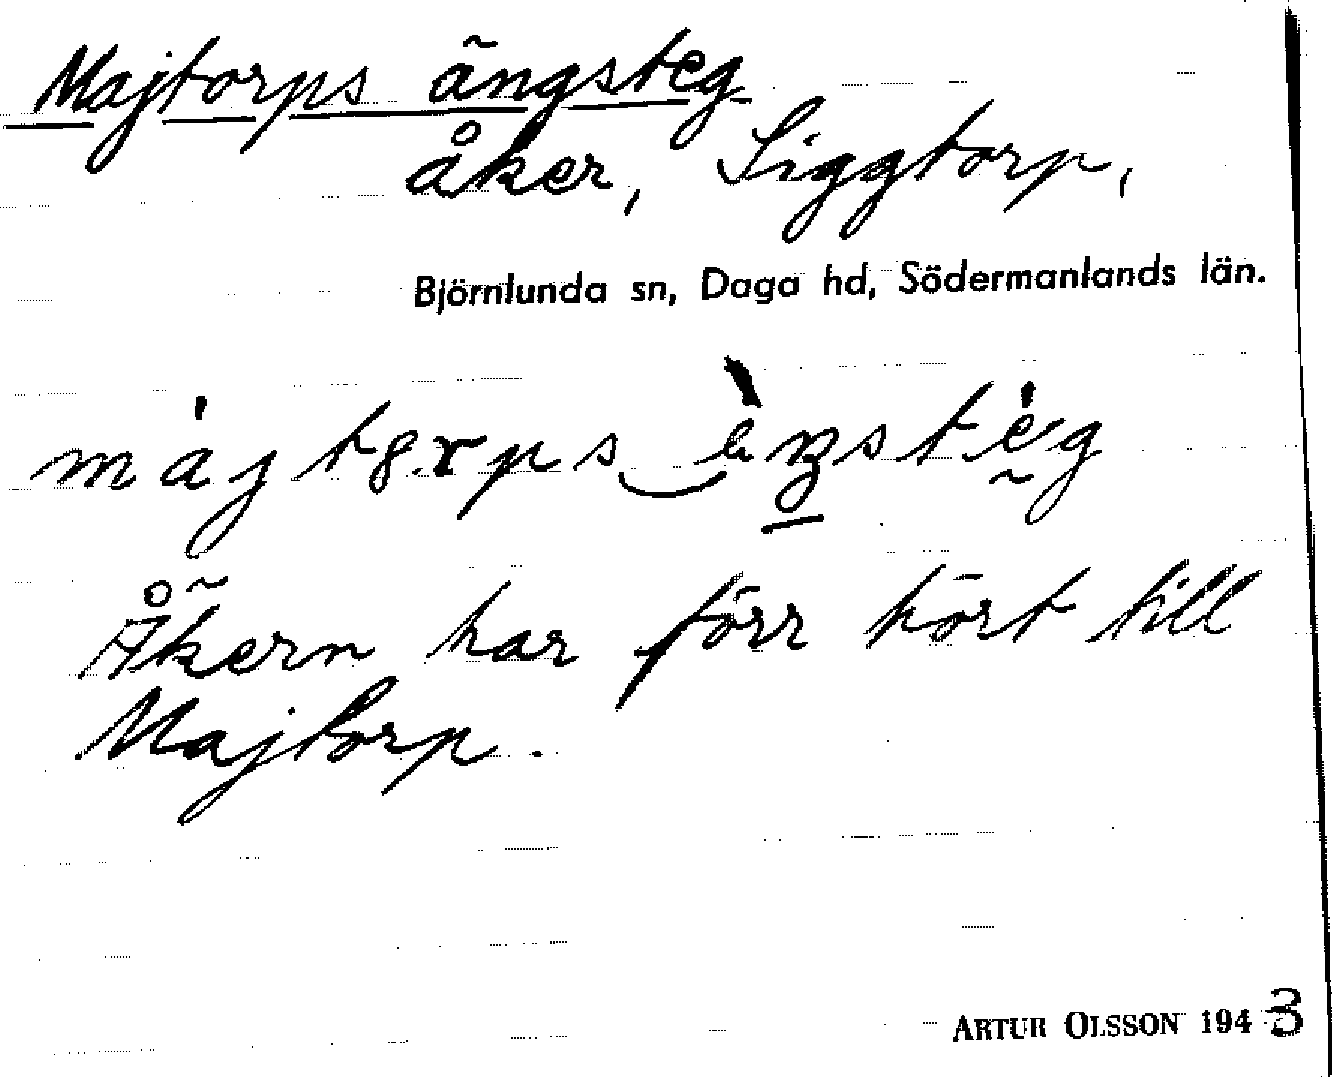 Majtorps ängsteg
åker, Siggtorp,
Björnlunda sn, Daga hd, Södermanlands län.
Åkern har förr hört till
Majtorp.
ARTUR OLSSON 1943